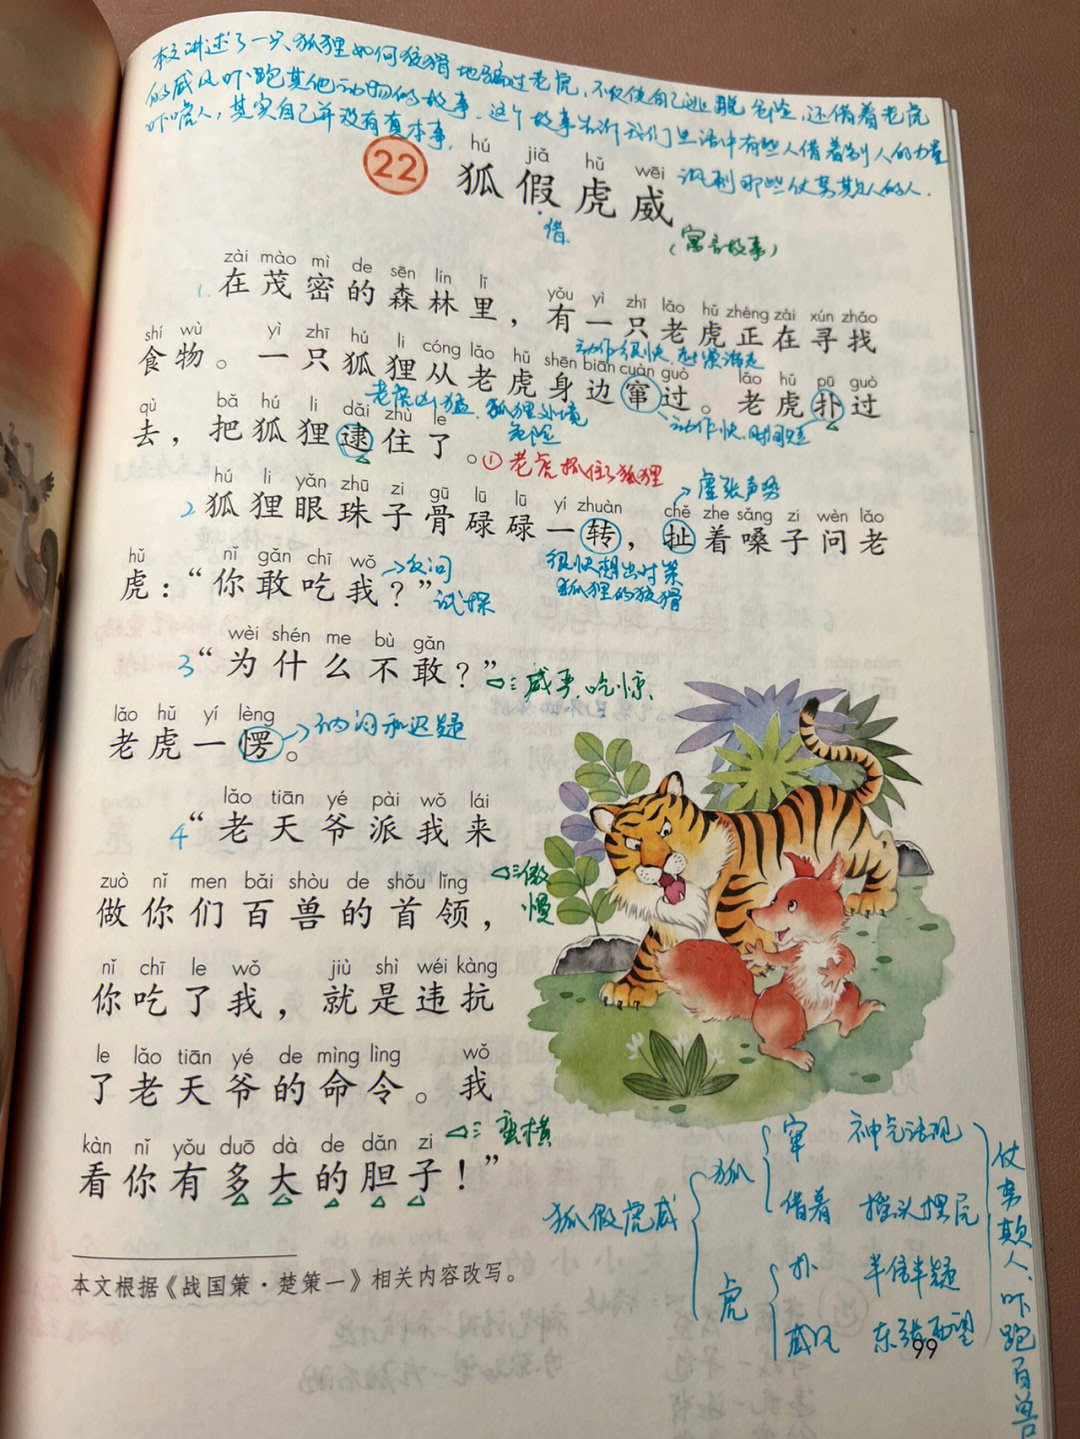 本文讲述了一只狐狸如何狡猾地骗过老虎，不仅使自己逃脱危险，还借着老虎
的威风吓跑其他动物的故事。这个故事告诉我们生活中有些人借着别人的力量
吓唬人，其实自己并没有真本事。
讽刺那些仗势欺人的人.
hú jiǎ hǔ wēi
22 狐假虎威
借
(寓言故事)
zài mào mì de sēn lín lǐ
1. 在茂密的森林里，
yǒu yì zhī lǎo hǔ zhèng zài xún zhǎo
有一只老虎正在寻找
shí wù yì zhī hú li cóng lǎo hǔ shēn biān cuàn guò lǎo hǔ pū guò
动作很快
食物。一只狐狸从老虎身边窜过。老虎扑过
老虎凶猛．狐狸处境
危险
动作快．时间短
qù bǎ hú li dǎi zhù le
去，把狐狸逮住了。
①老虎抓住了狐狸
hú li yǎn zhū zi gū lū lū yí zhuàn chě zhe sǎng zi wèn lǎo
虚张声势
2 狐狸眼珠子骨碌碌一转，扯着嗓子问老
hǔ nǐ gǎn chī wǒ
虎：“你敢吃我？”
反问
试探
很快想出对策
狐狸的狡猾
wèi shén me bù gǎn
3 “为什么不敢？”
威严．吃惊
lǎo hǔ yí lèng
老虎一愣。
纳闷和迟疑
lǎo tiān yé pài wǒ lái
4 “老天爷派我来
zuò nǐ men bǎi shòu de shǒu lǐng
做你们百兽的首领，
傲
慢
nǐ chī le wǒ jiù shì wéi kàng
你吃了我，就是违抗
le lǎo tiān yé de mìng lìng wǒ
了老天爷的命令。我
kàn nǐ yǒu duō dà de dǎn zi
看你有多大的胆子！”
蛮横
狐假虎威
狐
窜 神气活现
借着 摇头摆尾
虎
扑 半信半疑
威风 东张西望
仗势欺人．吓跑百兽
本文根据《战国策·楚策一》相关内容改写。
99